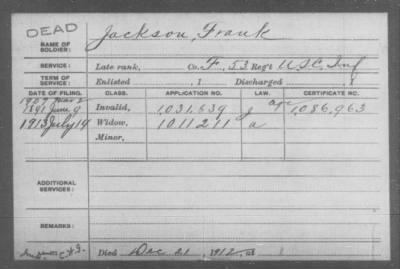 DEAD
Jackson, Frank
NAME OF SOLDIER:
SERVICE: Late rank, Co. F, 53 Reg't U.S.C. Inf
TERM OF SERVICE: Enlisted , 1 Discharged , 1
DATE OF FILING. CLASS. APPLICATION NO. LAW. CERTIFICATE NO.
1907 Mar 2 age
1891 June 9 Invalid, 1,031,539 J 1,086,963
1913 July 14 Widow, 1011211 a
Minor,
ADDITIONAL SERVICES:
REMARKS:
Died Dec 21 1912, at